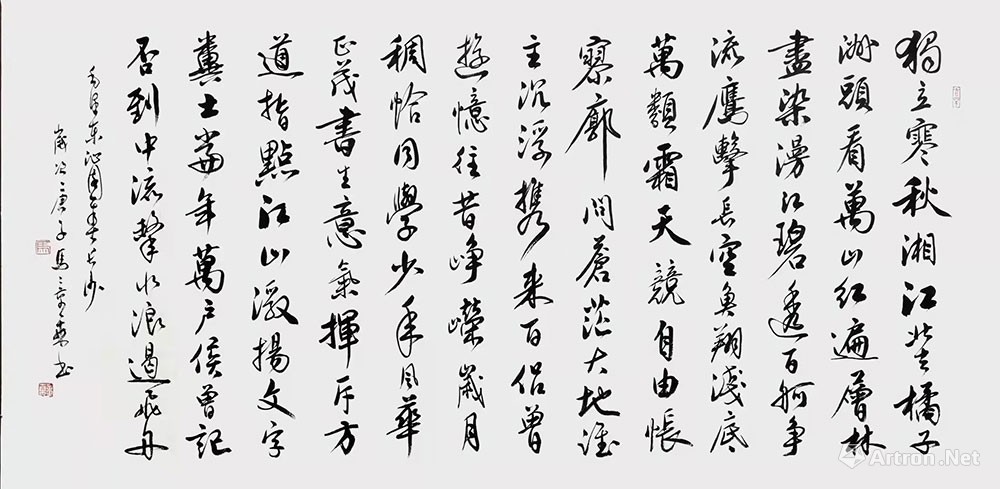 獨立寒秋湘江北去橘子
洲頭看萬山紅遍層林
盡染漫江碧透百舸争
流鷹擊長空魚翔淺底
萬類霜天競自由悵
寥廓問蒼茫大地誰
主沉浮携来百侣曾
遊憶往昔崢嶸嵗月
稠恰同學少年風華
正茂書生意氣揮斥方
遒指點江山激揚文字
糞土當年萬户侯曾記
否到中流擊水浪遏飛舟
毛澤東沁園春長沙
歲次庚子馬書
Artron.Net